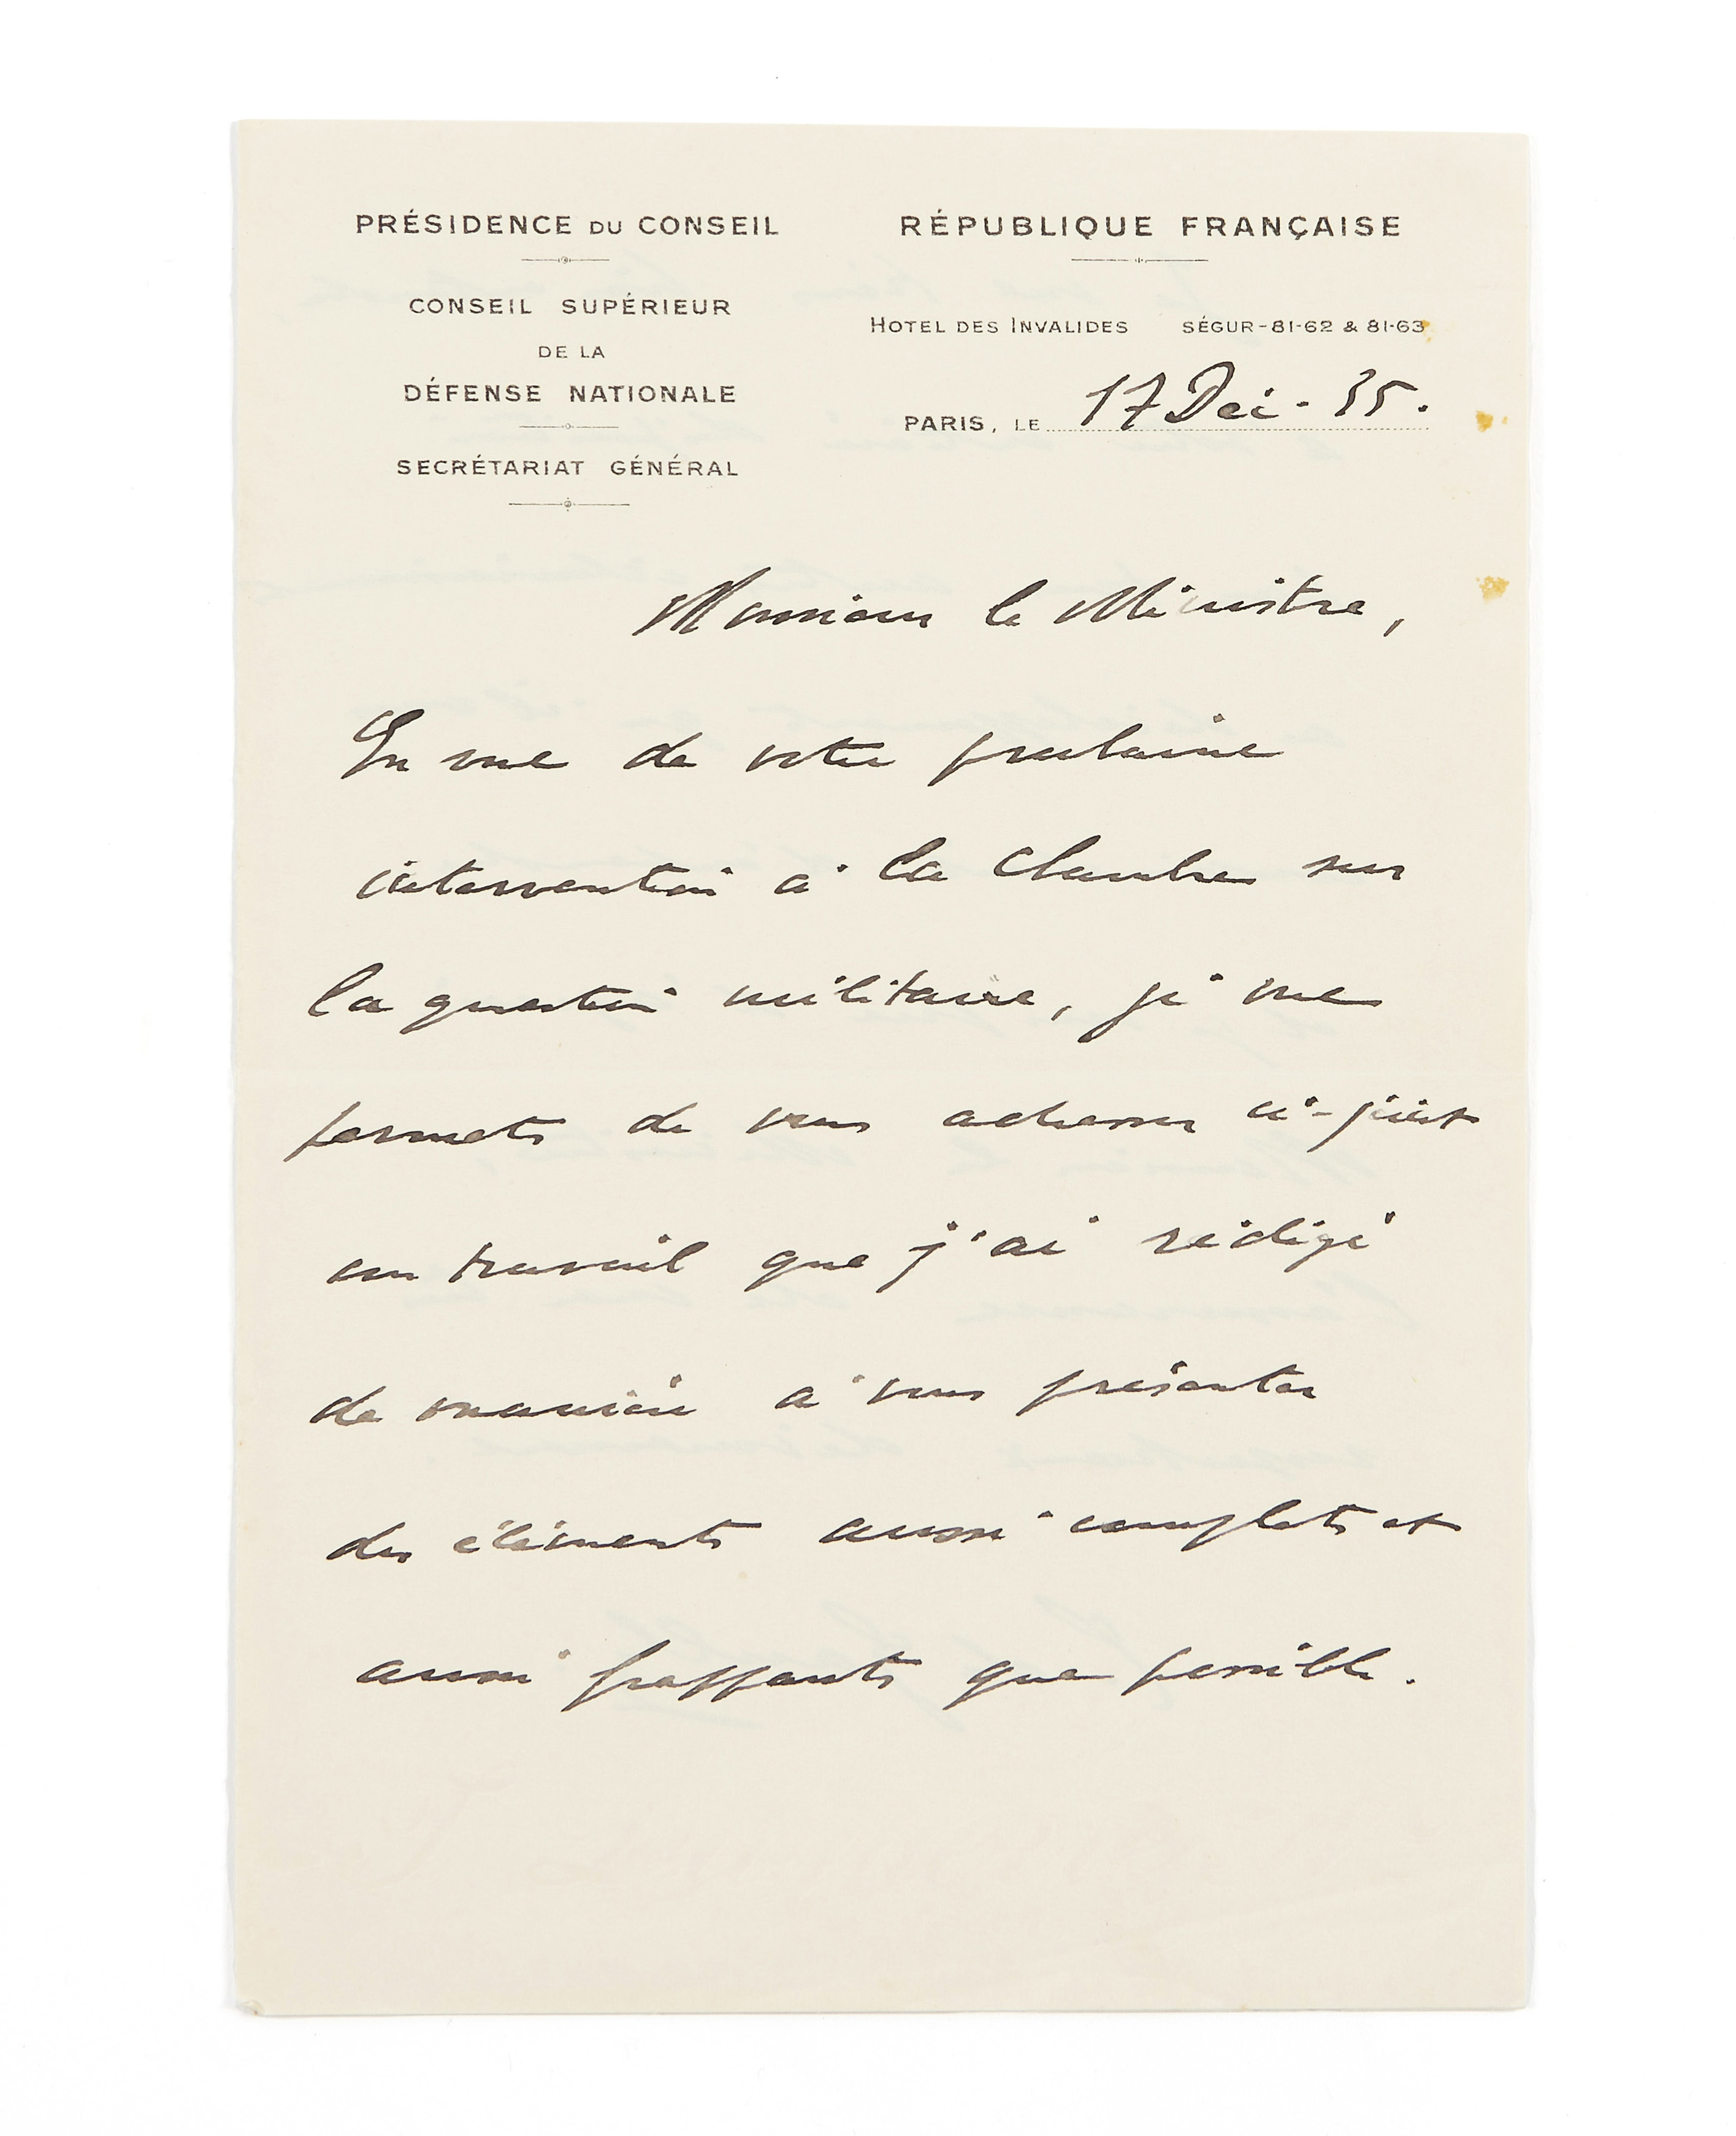 PRÉSIDENCE DU CONSEIL
CONSEIL SUPÉRIEUR
DE LA
DÉFENSE NATIONALE
SECRÉTARIAT GÉNÉRAL
RÉPUBLIQUE FRANÇAISE
HOTEL DES INVALIDES SÉGUR-81-62 & 81-63
PARIS, LE 17 Déc. 35.
Monsieur le Ministre,
En vue de votre prochaine
intervention à la Chambre sur
la question militaire, je me
permets de vous adresser ci-joint
un travail que j'ai rédigé
de manière à vous présenter
des éléments aussi complets et
aussi frappants que possible.